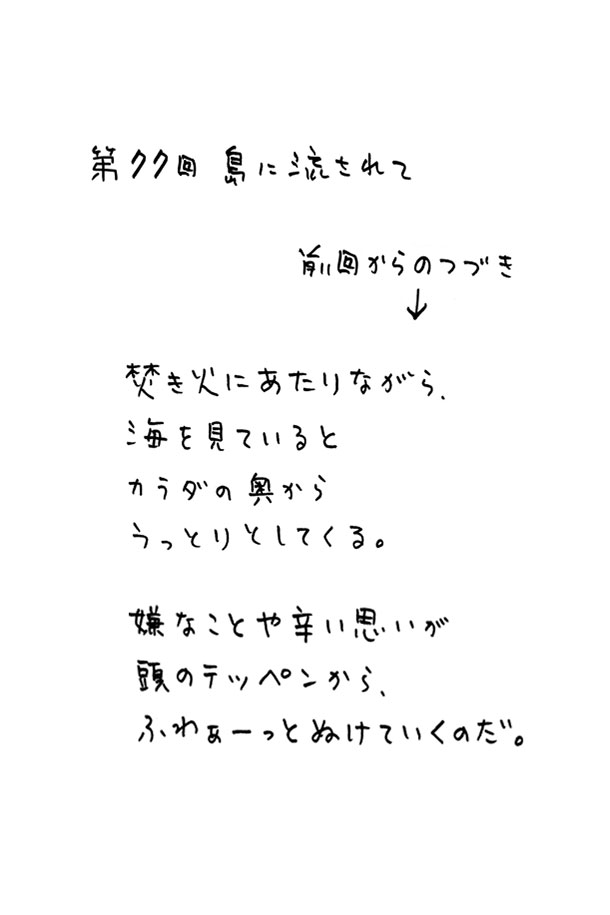 第77回 島に流されて
前回からのつづき
↓
焚き火にあたりながら、
海を見ていると
カラダの奥から
うっとりとしてくる。
嫌なことや辛い思いが
頭のテッペンから、
ふわぁーっとぬけていくのだ。